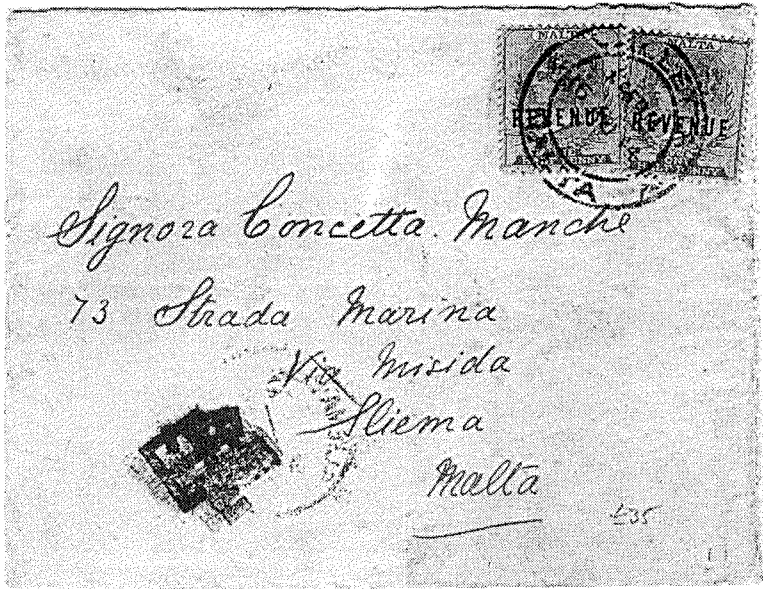 MALTA MALTA
REVENUE REVENUE
Signora Concetta. Manché
73 Strada Marina
Via Misida
Sliema
Malta
£35